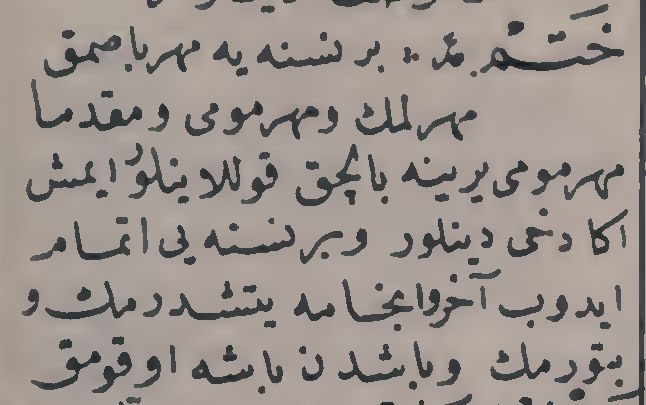 خَتْمْ عر : بر نسنه یه مهر باصمق
مهرلمك ومهر مومی ومقدما
مهر مومی یرینه بالچق قوللانیلور ایمش
اكا دخی دینلور وبر نسنه یی اتمام
ایدوب آخر وانجامه یتشدرمك و
بتورمك وباشدن باشه اوقومق